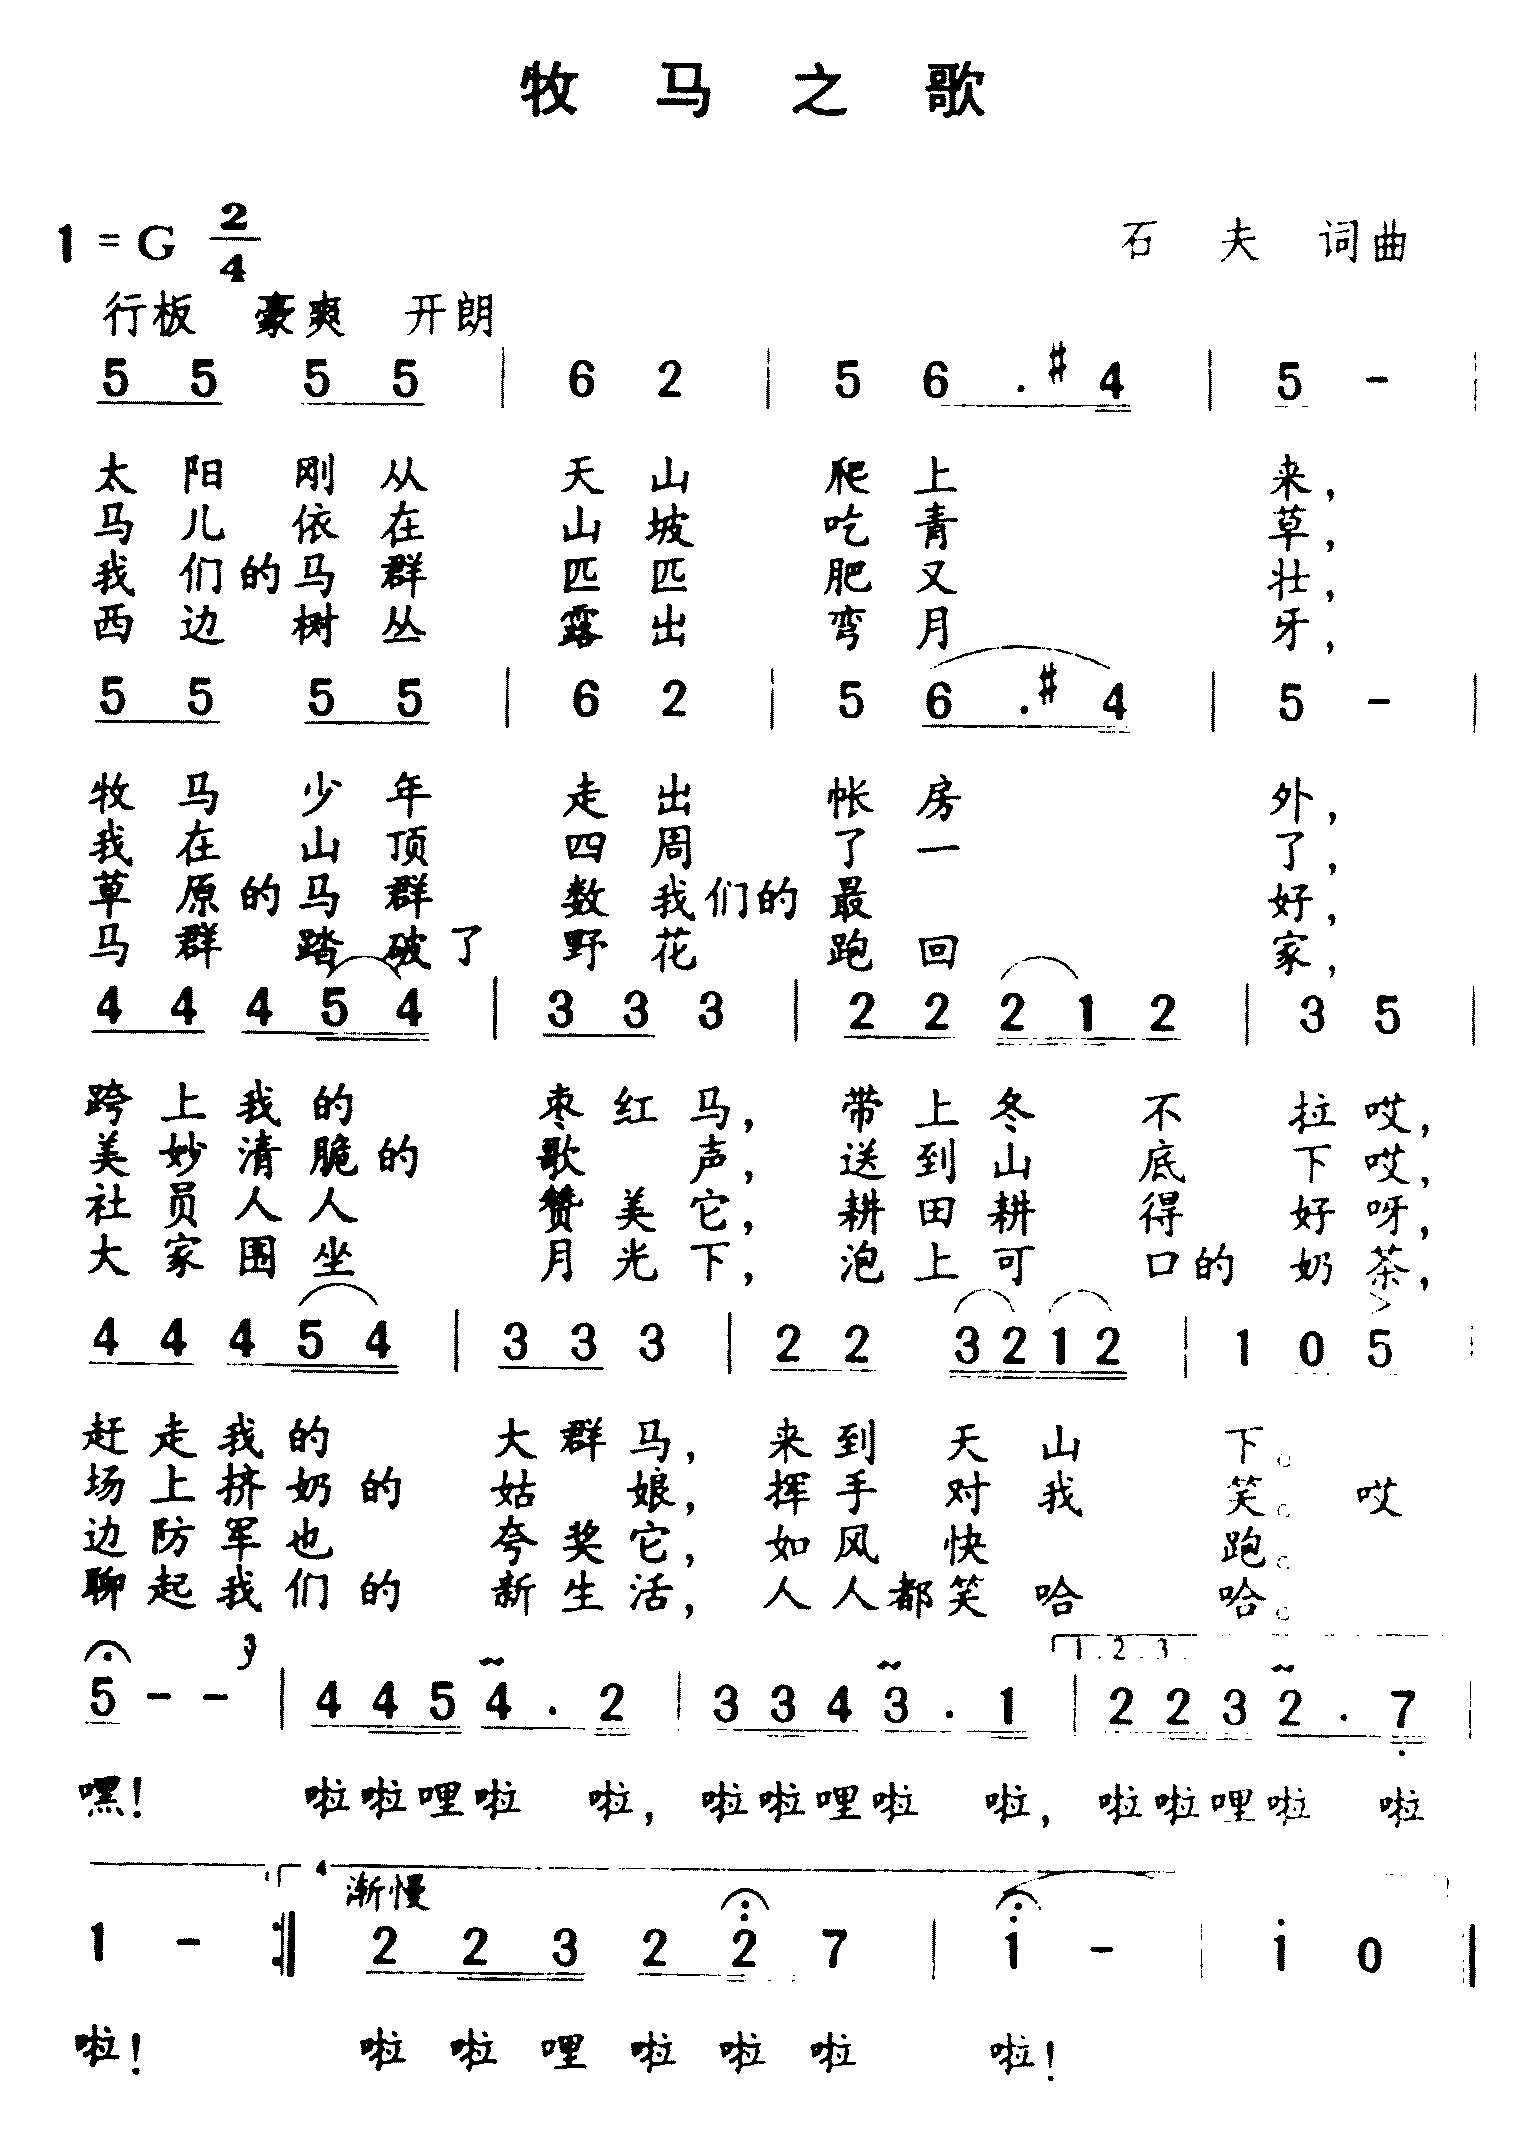 牧马之歌
1=G 2/4
石夫 词曲
行板 豪爽 开朗
5 5 5 5 | 6 2 | 5 6 . #4 | 5 -
太阳刚从天山爬上来，
马儿依在山坡吃青草，
我们的马群匹匹肥又壮，
西边树丛露出弯月牙，
5 5 5 5 | 6 2 | 5 6 . #4 | 5 - |
牧马少年走出帐房外，
我在山顶四周了一了，
草原的马群数我们的最好，
马群踏破了野花跑回家，
4 4 4 5 4 | 3 3 3 | 2 2 2 1 2 | 3 5 |
跨上我的枣红马，带上冬不拉哎，
美妙清脆的歌声，送到山底下哎，
社员人人赞美它，耕田耕得好呀，
大家围坐月光下，泡上可口的奶茶，
>
4 4 4 5 4 | 3 3 3 | 2 2 3 2 1 2 | 1 0 5
赶走我的大群马，来到天山下。
场上挤奶的姑娘，挥手对我笑。哎
边防军也夸奖它，如风快跑。
聊起我们的新生活，人人都笑哈哈。
1.2.3.
5 - - | 4 4 5 4 . 2 | 3 3 4 3 . 1 | 2 2 3 2 . 7 |
嘿！啦啦哩啦啦，啦啦哩啦啦，啦啦哩啦啦
4
渐慢
1 - :‖ 2 2 3 2 2 7 | 1 - | 1 0 ‖
啦！啦啦哩啦啦啦啦！